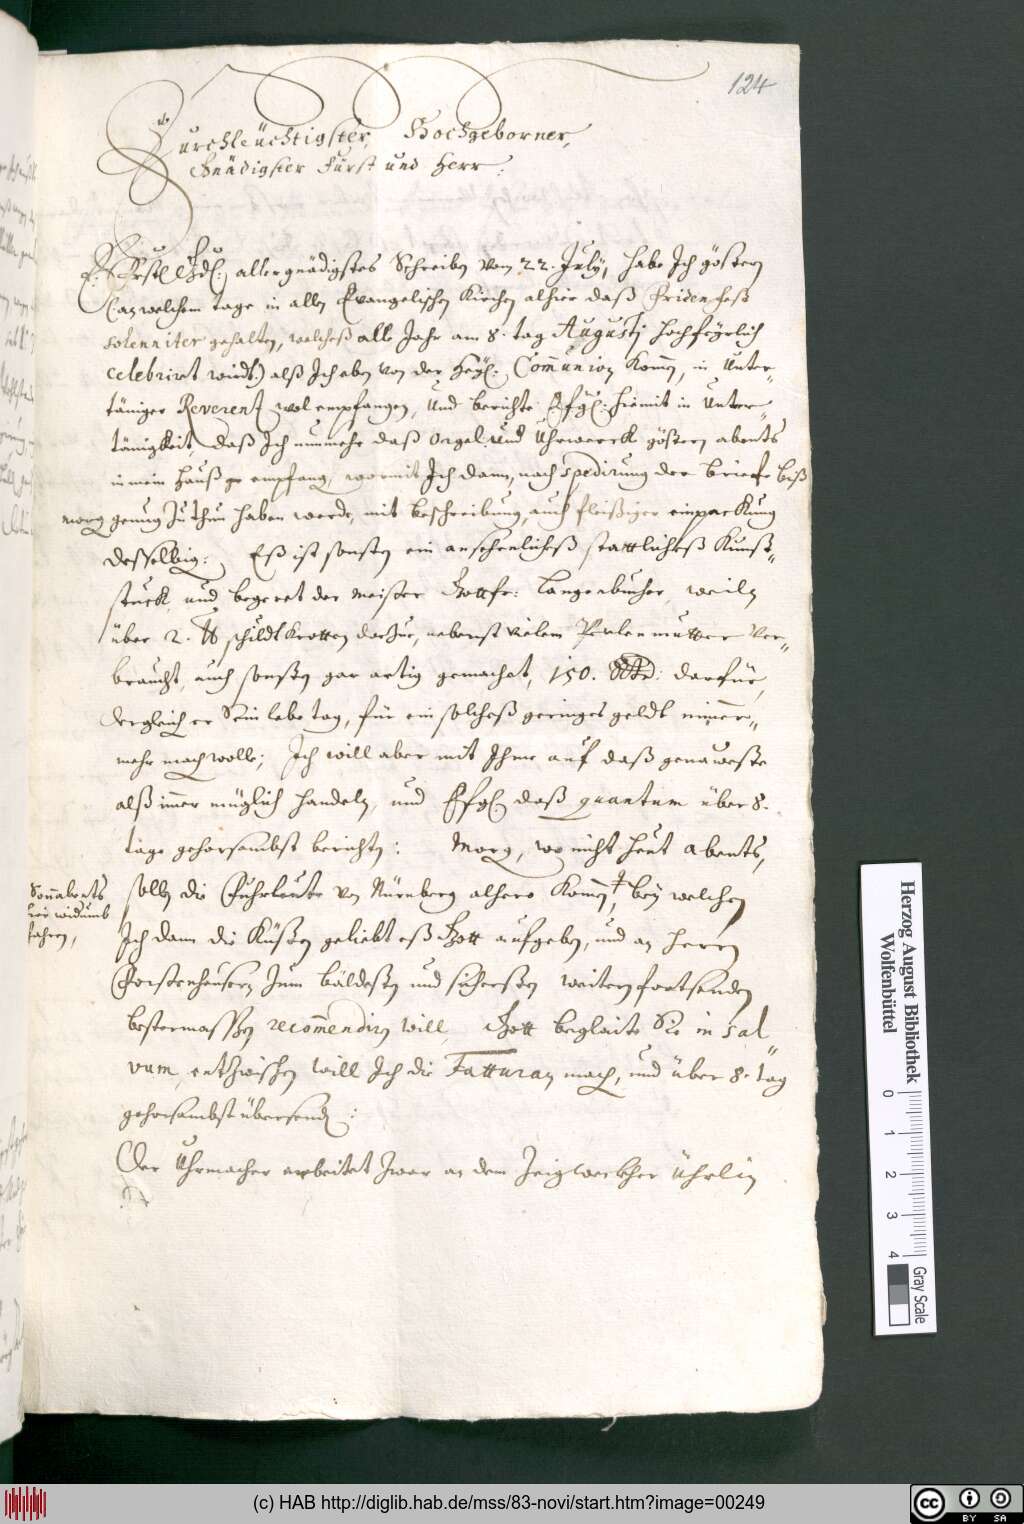 124
Durchleüchtigster, Hochgeborner,
Gnädigster Fürst und Herr.
E: Frstl: Gd: allergnädigstes Schreiben vom 22. July, habe Ich göstern
(an welchem tage in allen Evangelischen Kirchen alhier daß Fridenfest
solenniter gehalten, welcheß alle Jahr am 8. tag Augustj hochfeyrlich
celebrirt wirdt) alß Ich eben von der Heyl: Communion kommen, in Unter-
täniger Reverentz wol empfangen, Und berichte Efgl: hiemit in Unter-
tänigkeit, daß Ich nunmehr daß Orgel und Uhrwerck göstern abents
in mein Hauß empfangen, wormit Ich dann, nach spedirung der briefe biß
morgen genug zu thun haben werde, mit beschreibung, auch fleißiger einpackung
desselbigen: Eß ist sonsten ein ansehenlicheß stattlicheß Kunst-
stuck, und begeret der meister Gottfr: Langenbucher, weiln
über 2. lb schildtkrotten darzue, nebenst vielem Perlenmutter ver-
braucht, auch sonsten gar artig gemachet, 150. Rthr: darfür,
dergleichen er sein lebetag, für ein solcheß geringes geldt nimer-
mehr machen wolle; Ich will aber mit Ihme auf daß genaweste
alß imer müglich handeln, und Efgl. daß quantum über 8.
tage gehorsambst berichten: Morgen, wo nicht heut abents,
sollen die Fuhrleute von Nürnberg alhero kommen, bey welchen
Sonnabents
hier widumb
fahren,
Ich dann die Küsten geliebt eß Gott aufgeben, und an Herrn
Forstenheusern zum bäldesten und sichersten weitern fortsenden
bestermassen recommendirn will, Gott begleite Sie in sal-
vum, entzwischen will Ich die Fatturan machen, und über 8. tag
gehorsambst übersenden:
Der Uhrmacher arbeitet zwar an dem Zeigweckher Ührlin
(c) HAB http://diglib.hab.de/mss/83-novi/start.htm?image=00249
Herzog August Bibliothek
Wolfenbüttel
0 1 2 3 4
Gray Scale
cc BY SA